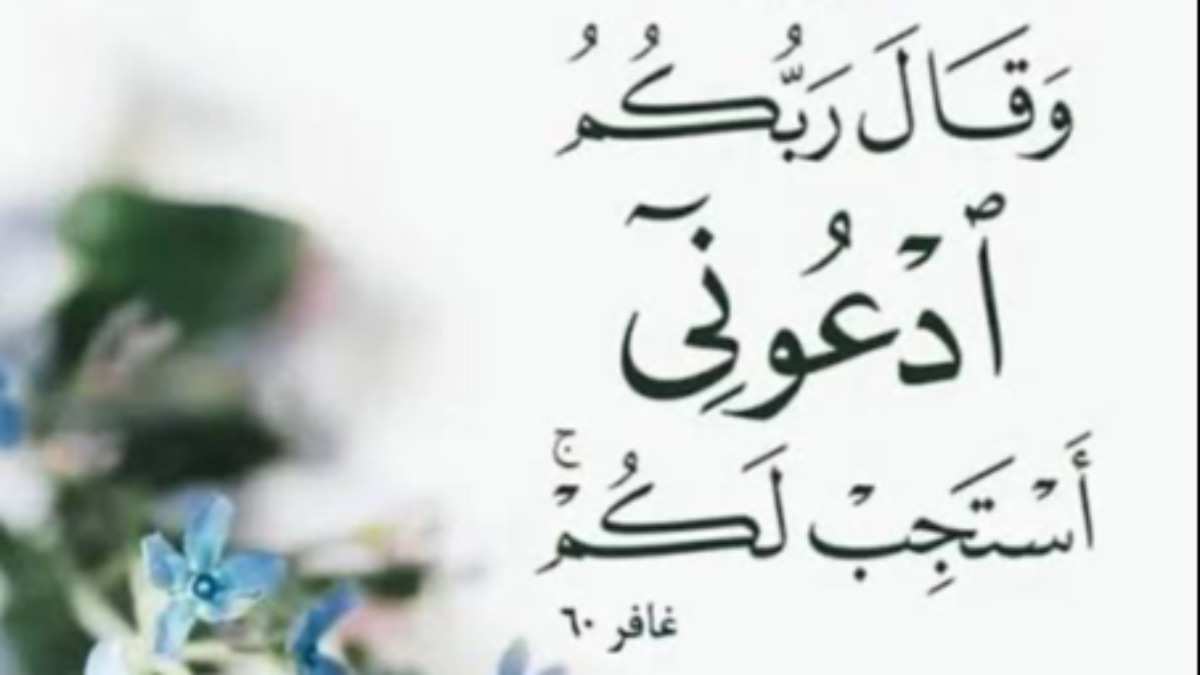 وَقَالَ رَبُّكُمُ
ٱدۡعُونِيٓ
أَسۡتَجِبۡ لَكُمۡۚ
غافر ٦٠